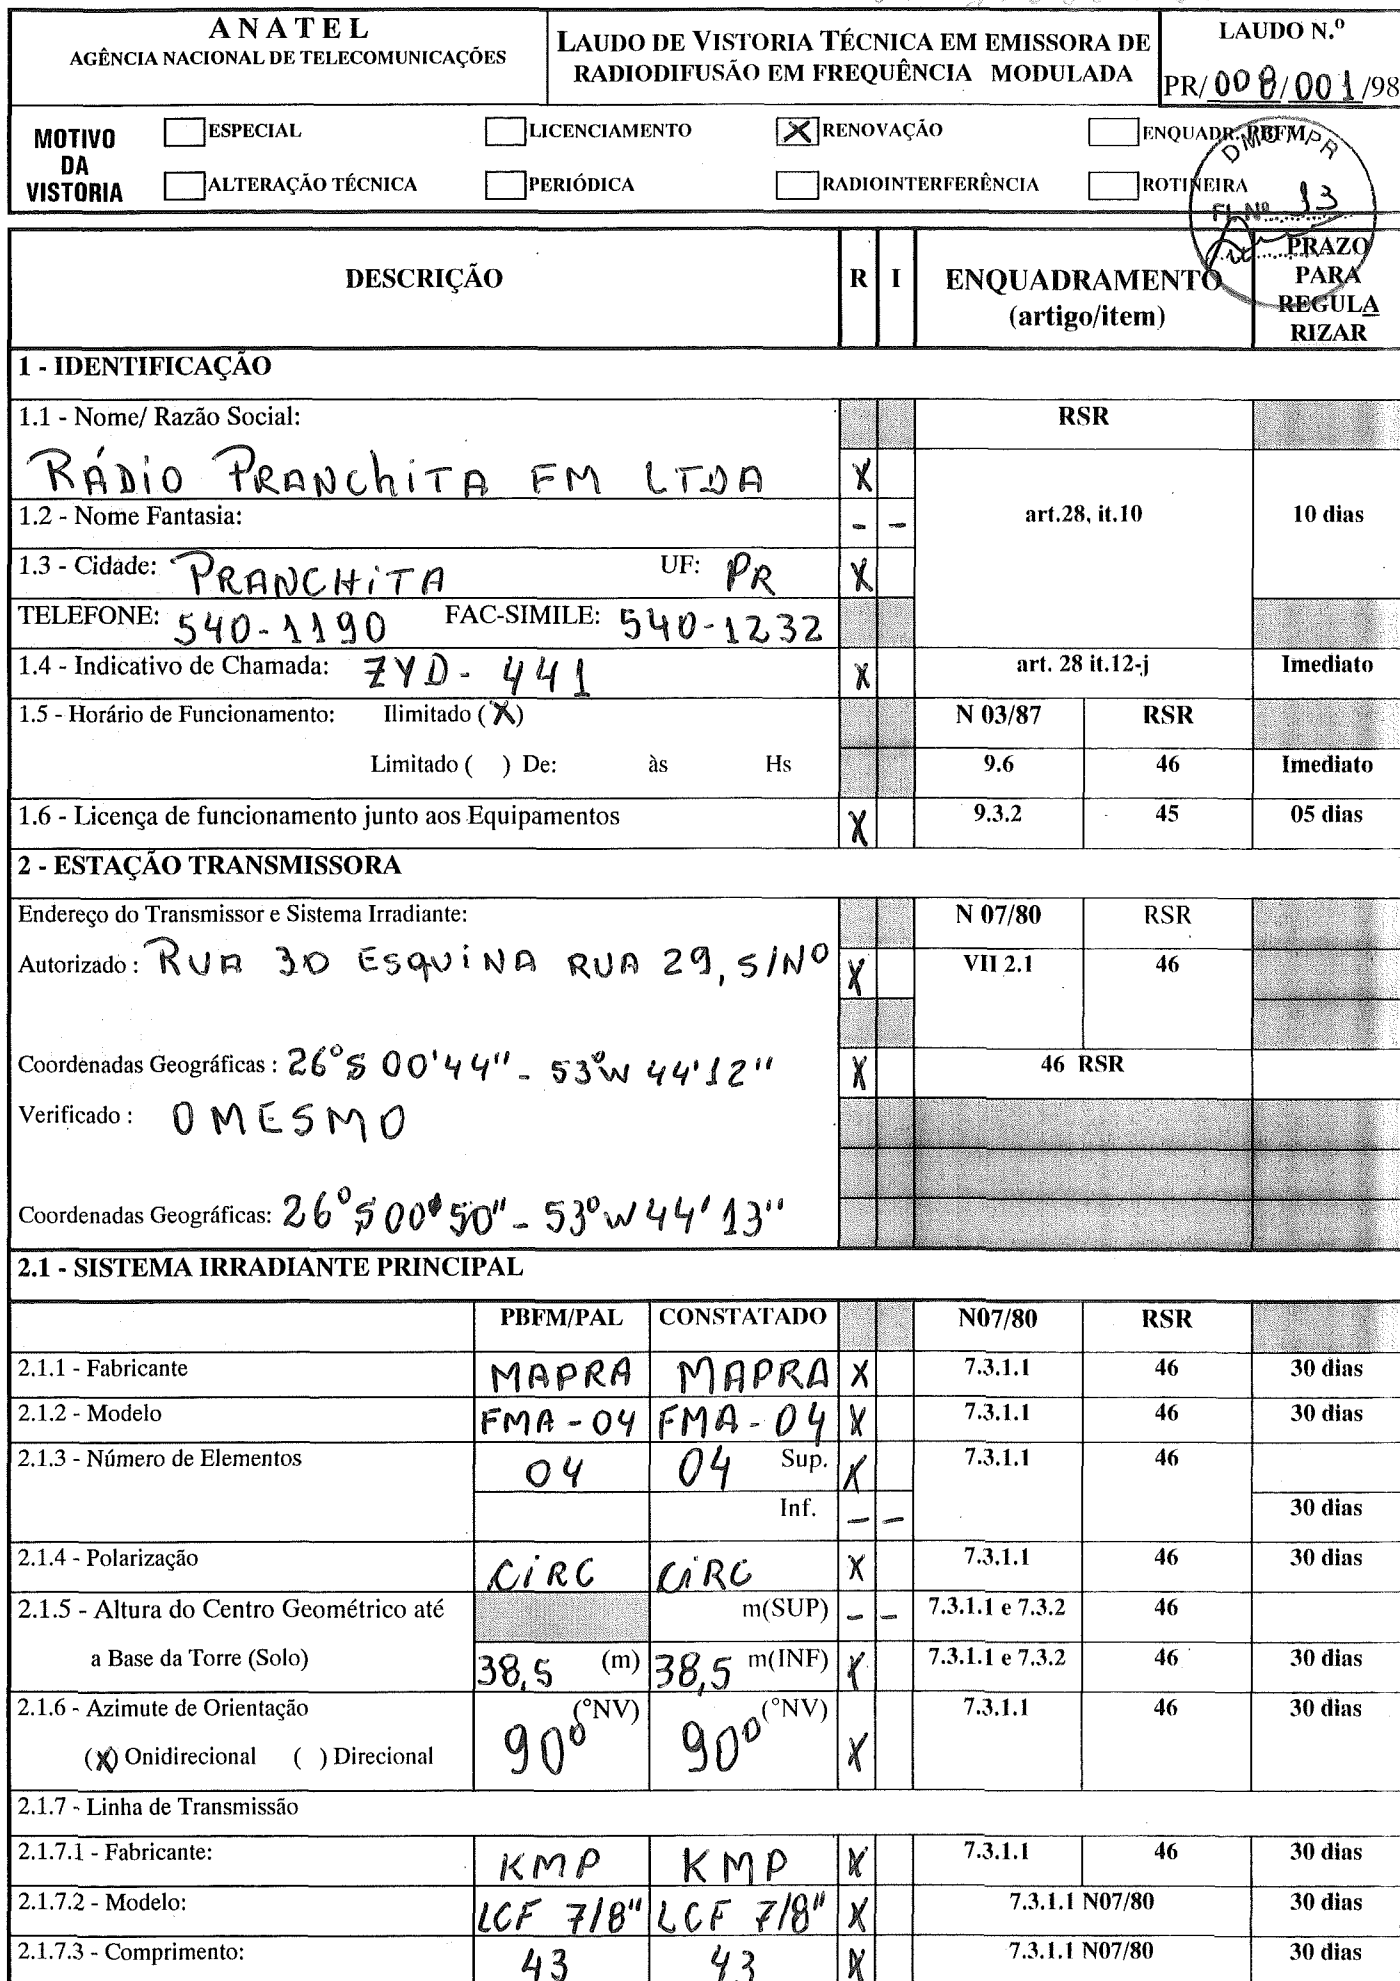 ANATEL
AGÊNCIA NACIONAL DE TELECOMUNICAÇÕES
LAUDO DE VISTORIA TÉCNICA EM EMISSORA DE
RADIODIFUSÃO EM FREQUÊNCIA MODULADA
LAUDO N.º
PR/008/001/98
MOTIVO
DA
VISTORIA
ESPECIAL
LICENCIAMENTO
X RENOVAÇÃO
ENQUADR. PBFM
ALTERAÇÃO TÉCNICA
PERIÓDICA
RADIOINTERFERÊNCIA
ROTINEIRA
FL Nº 13
DESCRIÇÃO
R
I
ENQUADRAMENTO
(artigo/item)
PRAZO
PARA
REGULA
RIZAR
1 - IDENTIFICAÇÃO
1.1 - Nome/ Razão Social: RSR
RÁDIO PRANCHITA FM LTDA X
1.2 - Nome Fantasia: - - art.28, it.10 10 dias
1.3 - Cidade: PRANCHITA UF: PR X
TELEFONE: 540-1190 FAC-SIMILE: 540-1232
1.4 - Indicativo de Chamada: ZYD-441 X art. 28 it.12-j Imediato
1.5 - Horário de Funcionamento: Ilimitado (X) N 03/87 RSR
Limitado ( ) De: às Hs 9.6 46 Imediato
1.6 - Licença de funcionamento junto aos Equipamentos X 9.3.2 45 05 dias
2 - ESTAÇÃO TRANSMISSORA
Endereço do Transmissor e Sistema Irradiante: N 07/80 RSR
Autorizado : RUA 30 ESQUINA RUA 29, S/Nº X VII 2.1 46
Coordenadas Geográficas : 26ºS 00'44" - 53ºW 44'12" X 46 RSR
Verificado : O MESMO
Coordenadas Geográficas: 26ºS 00'50" - 53ºW 44'13"
2.1 - SISTEMA IRRADIANTE PRINCIPAL
PBFM/PAL CONSTATADO N07/80 RSR
2.1.1 - Fabricante MAPRA MAPRA X 7.3.1.1 46 30 dias
2.1.2 - Modelo FMA-04 FMA-04 X 7.3.1.1 46 30 dias
2.1.3 - Número de Elementos 04 04 Sup. X 7.3.1.1 46
Inf. - - 30 dias
2.1.4 - Polarização CIRC CIRC X 7.3.1.1 46 30 dias
2.1.5 - Altura do Centro Geométrico até m(SUP) - - 7.3.1.1 e 7.3.2 46
a Base da Torre (Solo) 38,5 (m) 38,5 m(INF) X 7.3.1.1 e 7.3.2 46 30 dias
2.1.6 - Azimute de Orientação (ºNV) (ºNV) 7.3.1.1 46 30 dias
(X) Onidirecional ( ) Direcional 90º 90º X
2.1.7 - Linha de Transmissão
2.1.7.1 - Fabricante: KMP KMP X 7.3.1.1 46 30 dias
2.1.7.2 - Modelo: LCF 7/8" LCF 7/8" X 7.3.1.1 N07/80 30 dias
2.1.7.3 - Comprimento: 43 43 X 7.3.1.1 N07/80 30 dias